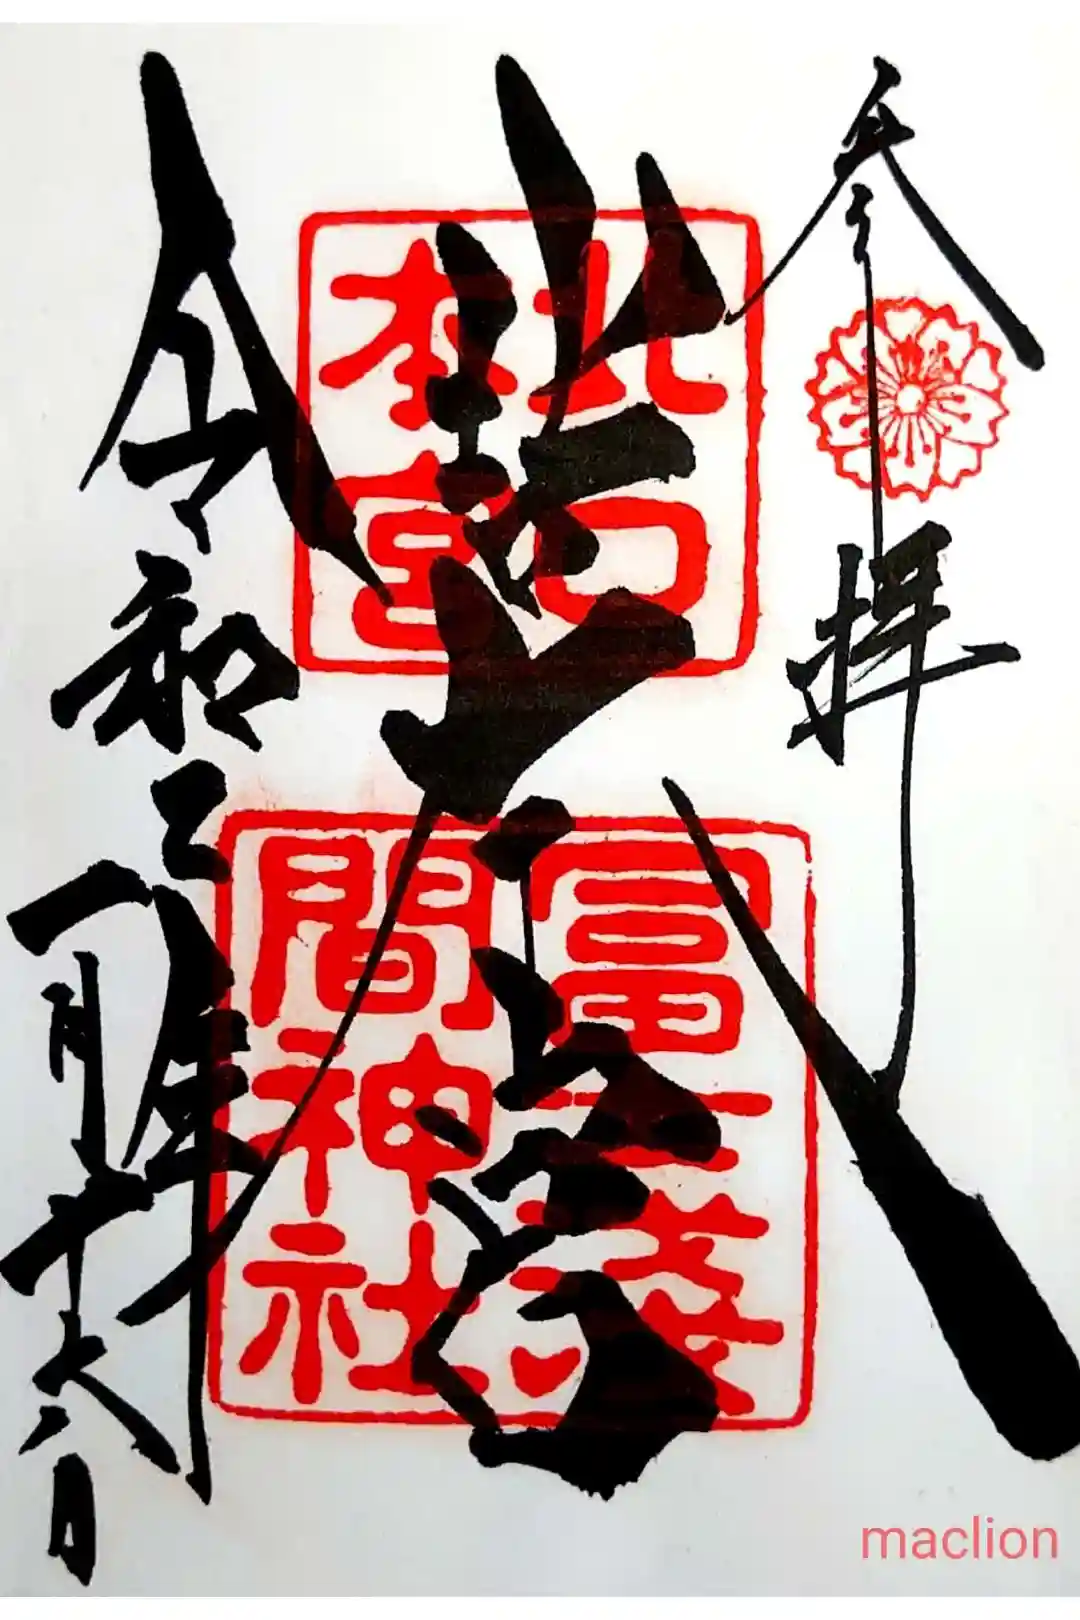 奉拝
北口
本宮
冨士淺
間神社
令和三年
一月十六日
maclion